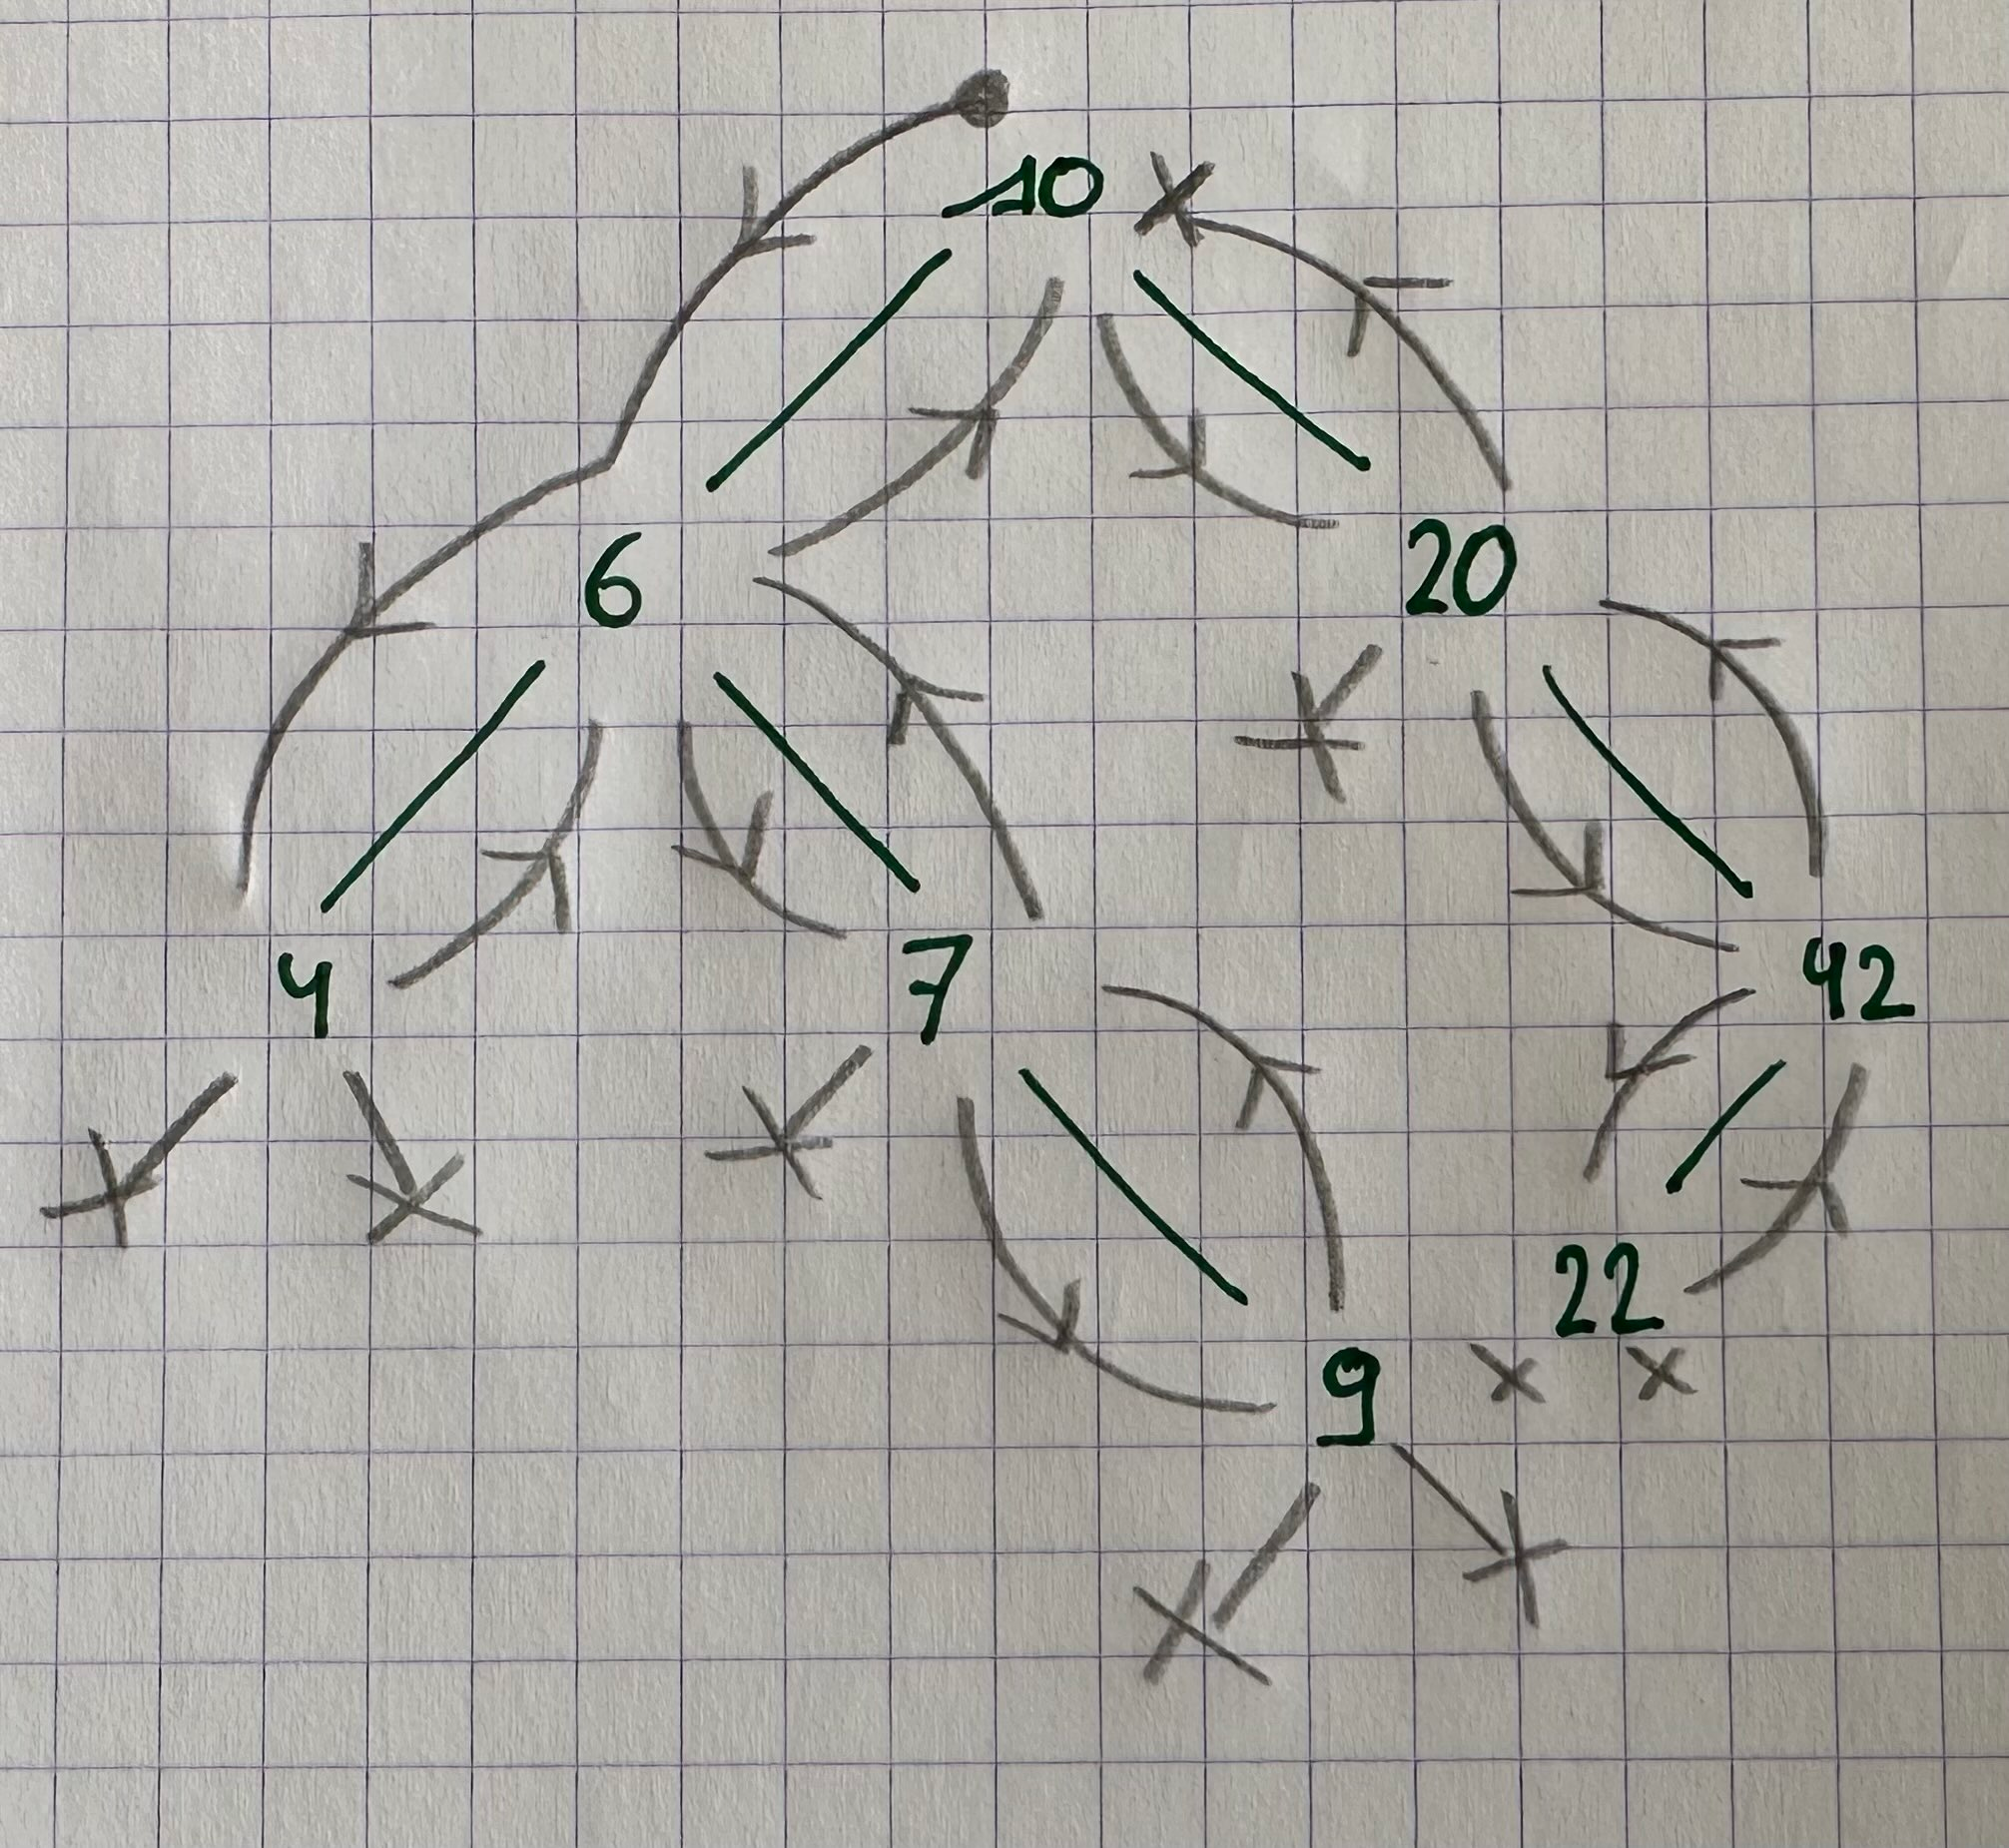 10
6 20
4 7 42
22
9